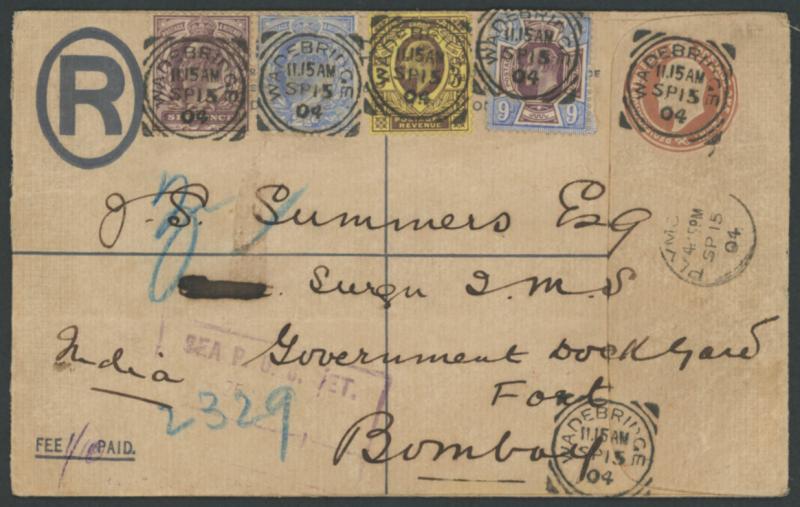 R
POSTAGE REVENUE
SIXPENCE
9 9
WADEBRIDGE
11.15AM
SP15
04
WADEBRIDGE
11.15AM
SP15
04
WADEBRIDGE
11.15AM
SP15
04
WADEBRIDGE
11.15AM
SP15
04
WADEBRIDGE
11.15AM
SP15
04
J. S. Summers Esq
PLYM
4 PM
SP15
04
Surgn I.M.S
SEA P. O.
India Government Dock Yard
2329
Fort
Bombay
WADEBRIDGE
11.15AM
SP15
04
FEE 1/10 PAID.